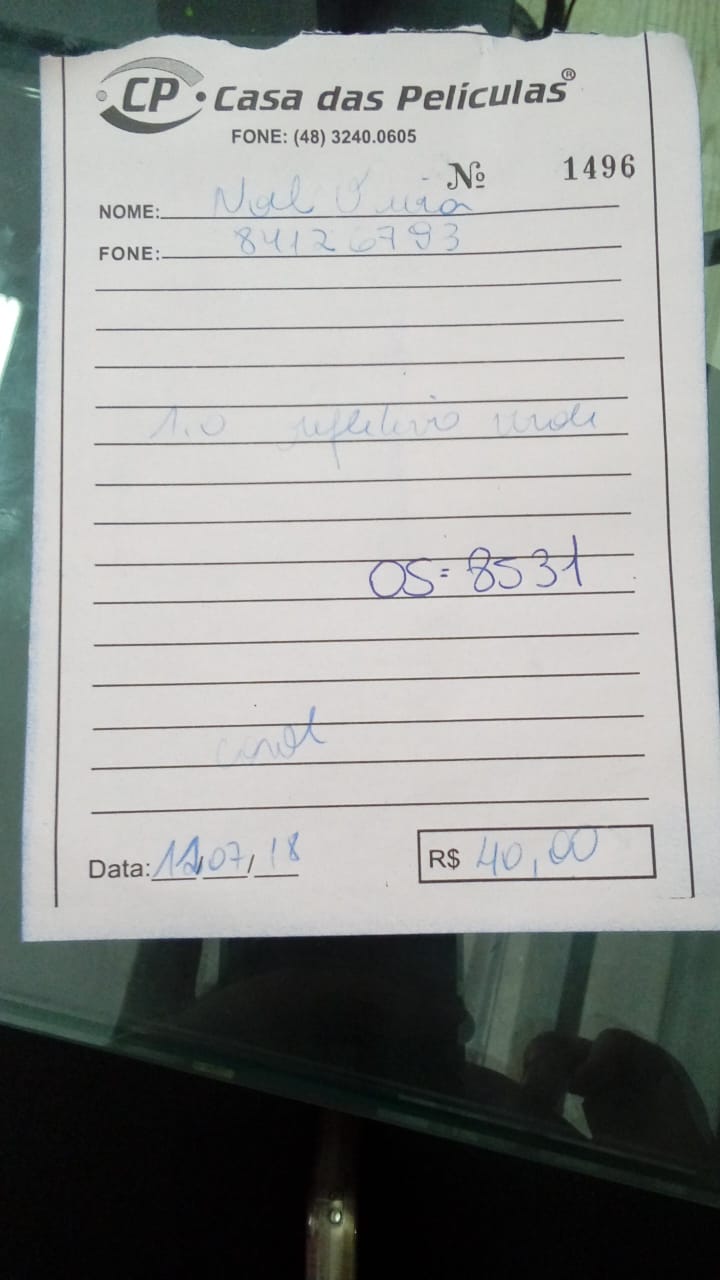 CP • Casa das Películas®
FONE: (48) 3240.0605
Nº 1496
NOME:
FONE: 84126793
1.0 refletivo verde
OS= 8531
Data: 12/07/18
R$ 40,00